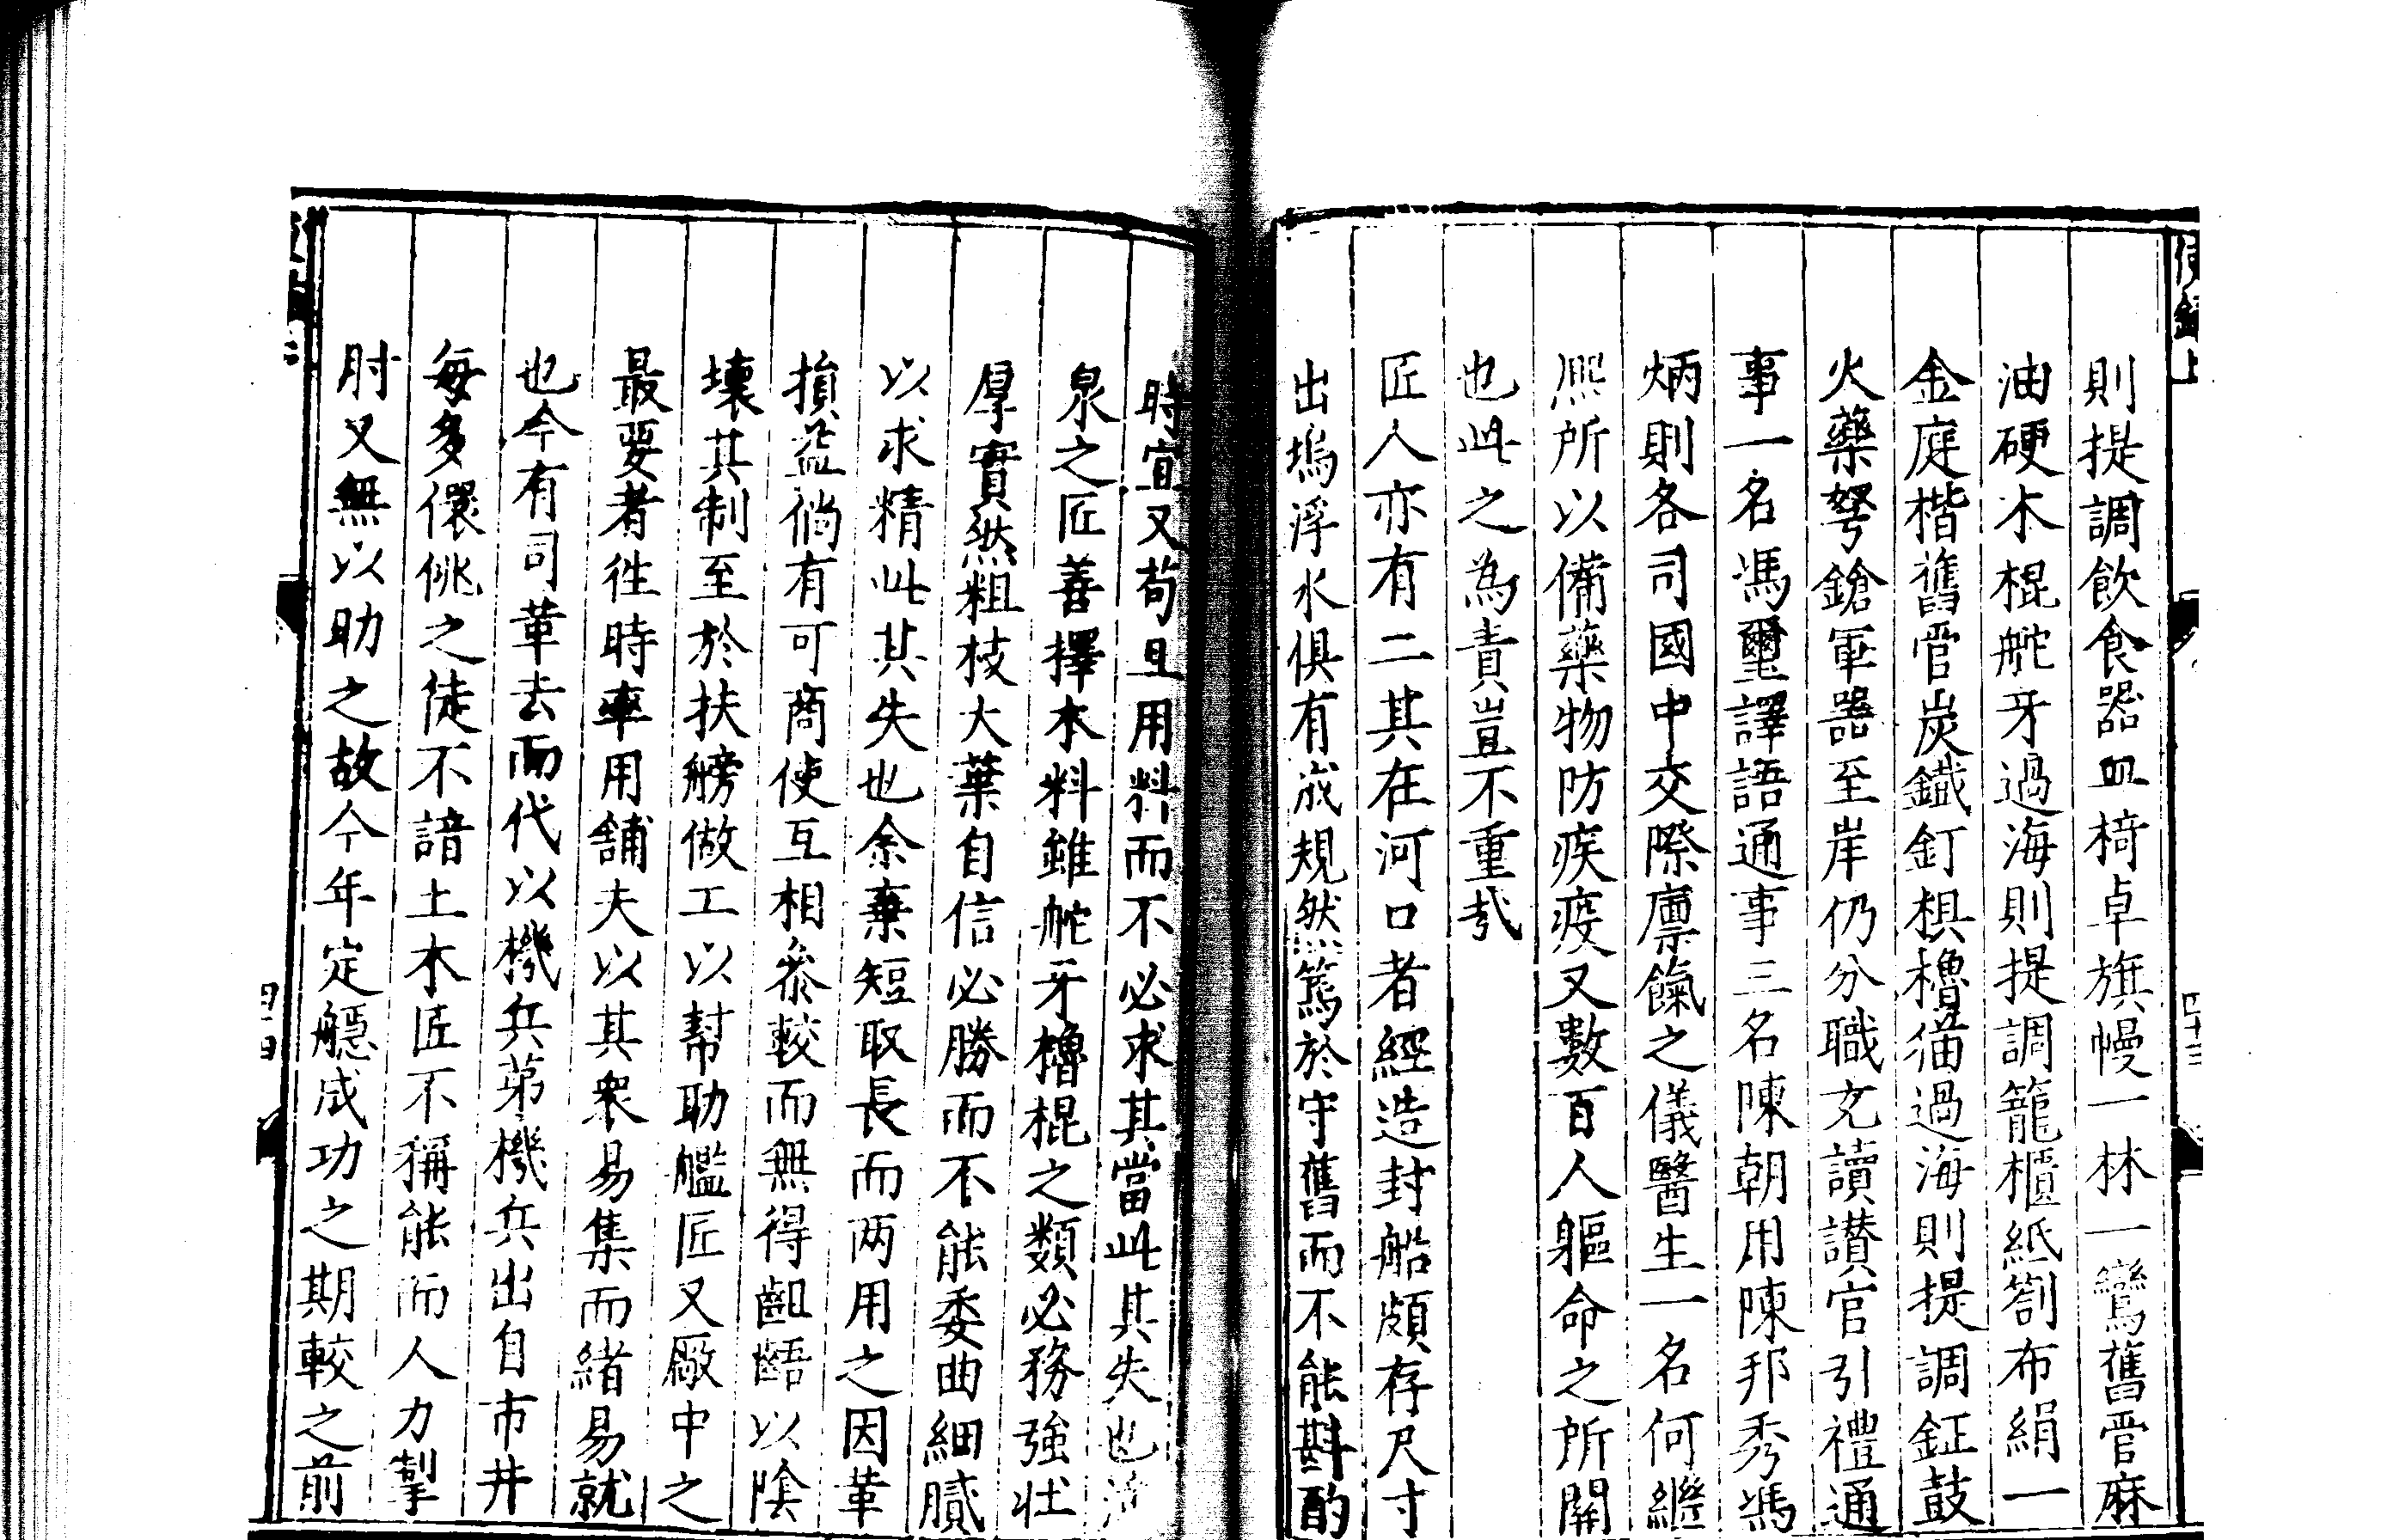 則提調飲食器皿椅卓旗幔一林一鸞舊管麻
油硬木棍舵牙過海則提調籠櫃紙劄布絹一
金庭楷舊管炭鐡釘椇櫓猫過海則提調鉦鼓
火藥弩鎗軍器至岸仍分職文讀讃官引禮通
事一名馮璽譯語通事三名陳朝用陳邦秀馮
炳則各司國中交際廪餼之儀醫生一名何繼
熈所以備藥物防疾疫又數百人軀命之所關
也此之為責豈不重㢤
匠人亦有二其在河口者經造封船頗存尺寸
出塢浮水俱有成規然篤於守舊而不能斟酌
時宜又苟且用料而不必求其當此其失也
泉之匠善擇木料雖舵牙櫓棍之類必務強壮
厚實然粗枝大葉自信必勝而不能委曲細膩
以求精此其失也余棄短取長而两用之因革
損益倘有可商使互相叅較而無得齟齬以隂
壊其制至於扶艕做工以幇助艦匠又厰中之
最要者徃時率用舖夫以其衆易集而緒易就
也今有司革去而代以機兵苐機兵出自市井
每多儇佻之徒不諳土木匠不稱能而人力掣
肘又無以助之故今年定䑴成功之期較之前
四十三
四四